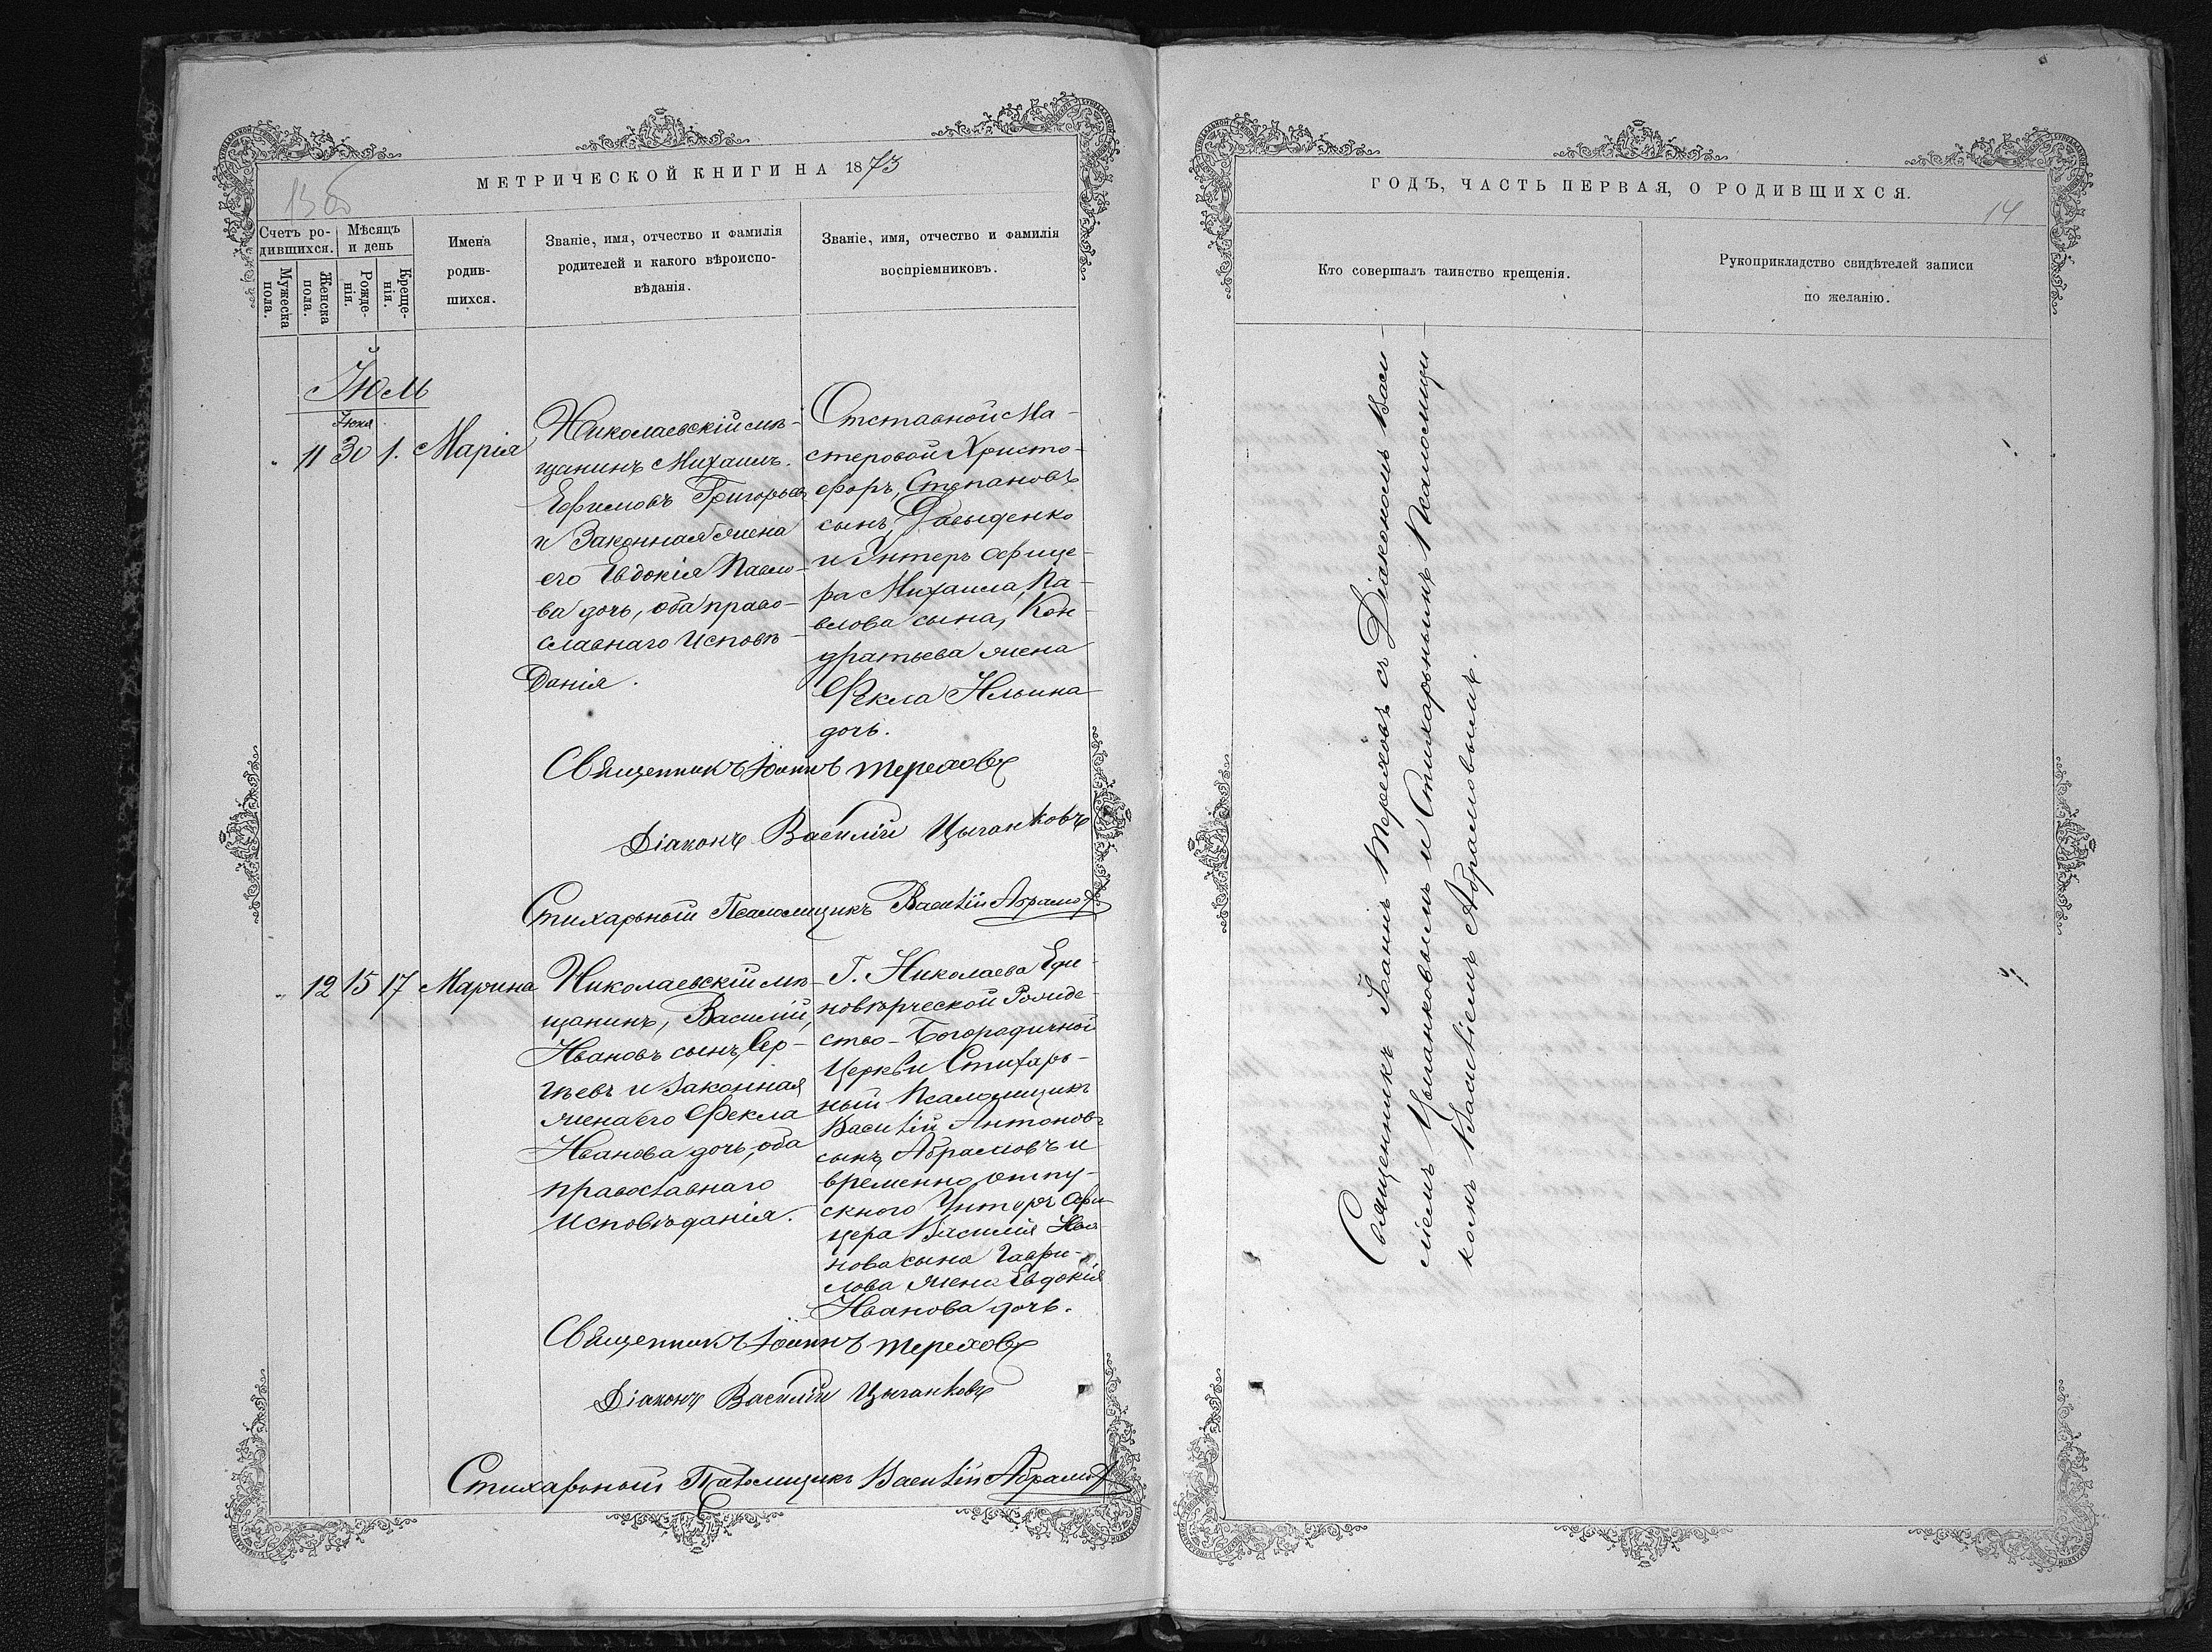 МЕТРИЧЕСКОЙ КНИГИ НА 1873
13 об
Счетъ ро-
дившихся.
Мужеска
пола.
Женска
пола.
Мѣсяцъ
и день
Рожде-
нія.
Креще-
нія.
Имена
родив-
шихся.
Званіе, имя, отчество и фамилія
родителей и какого вѣроиспо-
вѣданія.
Званіе, имя, отчество и фамилія
воспріемниковъ.
Іюль
Іюня
11 30 1. Марія
Николаевскій мѣ-
щанинъ Михаилъ
Ефимовъ Григорьевъ
и Законная жена
его Евдокія Павло-
ва дочь, оба право-
славнаго Исповѣ-
данія.
Отставной Ма-
стеровой Христо-
форъ, Степановъ
сынъ, Давыденко
и Унтеръ Офице-
ра Михаила, Па-
влова сына, Кон-
дратьева жена
Фекла Ильина
дочь.
Священникъ Іоаннъ Тереховъ
Діаконъ Василій Цыганковъ
Стихарный Псаломщикъ Василій Абрамовъ
12 15 17 Марина
Николаевскій мѣ-
щанинъ, Василій,
Ивановъ сынъ, Сер-
гѣевъ и Законная
жена его Фекла
Иванова дочь, оба
православнаго
Исповѣданія.
Г. Николаева Еди-
новѣрческой Рожде-
ство-Богородичной
Церкви Стихарь-
ный Псаломщикъ
Василій Антоновъ
сынъ, Абрамовъ и
временно отпу-
скного Унтеръ Офи-
цера Василія Ива-
нова сына Гаври-
лова жена Евдокія
Иванова дочь.
Священникъ Іоаннъ Тереховъ
Діаконъ Василій Цыганковъ
Стихарьный Псаломщикъ Василій Абрамовъ
ГОДЪ, ЧАСТЬ ПЕРВАЯ, О РОДИВШИХСЯ.
14
Кто совершалъ таинство крещенія.
Рукоприкладство свидѣтелей записи
по желанію.
Священникъ Іоаннъ Тереховъ съ Діакономъ Васи-
ліемъ Цыганковымъ и Стихарьнымъ Псаломщи-
комъ Василіемъ Абрамовымъ.